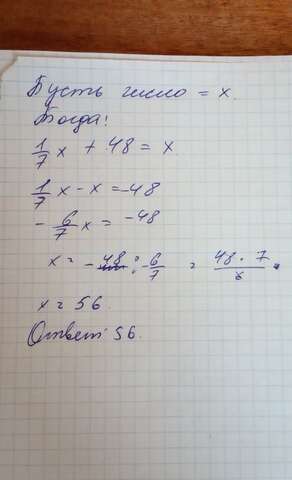 Пусть число = x.
Тогда:
1/7 x + 48 = x
1/7 x - x = -48
- 6/7 x = -48
x = - 48 : - 6/7 = 48 · 7 / 6
x = 56.
Ответ: 56.